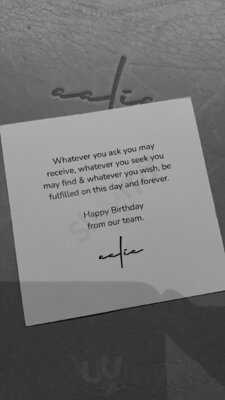 aalia
Whatever you ask you may
receive, whatever you seek you
may find & whatever you wish, be
fulfilled on this day and forever.
Happy Birthday
from our team.
aalia